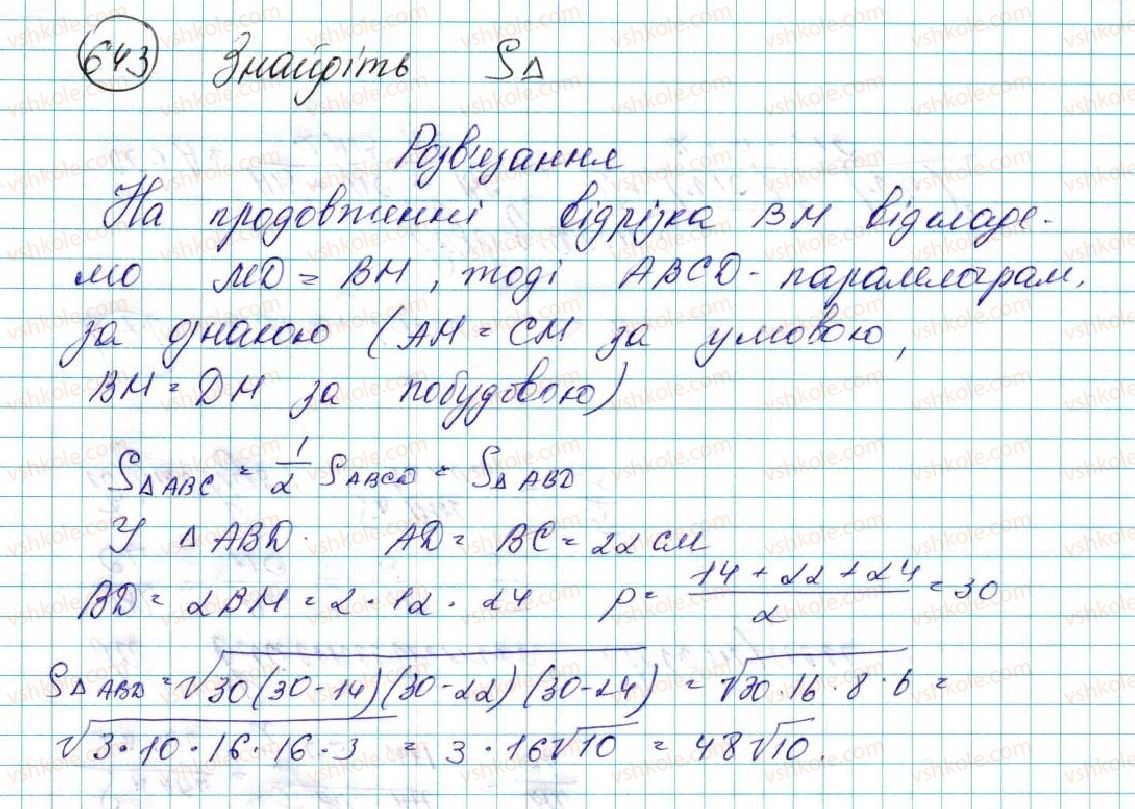 643 Знайдіть S△
Розв'язання
На продовженні відрізка BM відкладе-
мо MD = BM, тоді ABCD - паралелограм,
за ознакою (AM = CM за умовою,
BM = DM за побудовою)
S△ABC = 1/2 SABCD = S△ABD
У △ABD. AD = BC = 22 см
BD = 2BM = 2 · 12 · 24 p = (14 + 22 + 24)/2 = 30
S△ABD = √(30(30-14)(30-22)(30-24)) = √(30·16·8·6) =
√(3·10·16·16·3) = 3·16√10 = 48√10.